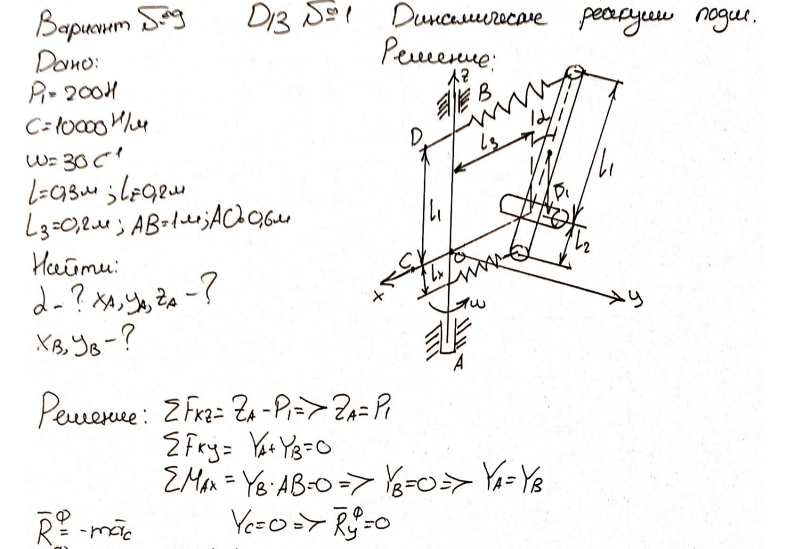 Вариант №9 D/З №1 Динамические реакции подш.
Дано: Решение:
P₁=200Н
C=10000Н/м
ω=30 С⁻¹
L=0,3м ; L=0,2м
L₃=0,2м ; AB=1м; AO=0,6м
Найти:
α - ? XA, YA, ZA - ?
XB, YB - ?
z
B
D
L₃
α
L₁
P₁
L₁
L₂
C
O
Lx
x
ω
y
A
Решение: ΣFKZ = ZA - P₁ => ZA = P₁
ΣFKy = YA + YB = 0
ΣMAx = YB · AB = 0 => YB = 0 => YA = YB
R̄Ф = - māc YC = 0 => R̄yФ = 0